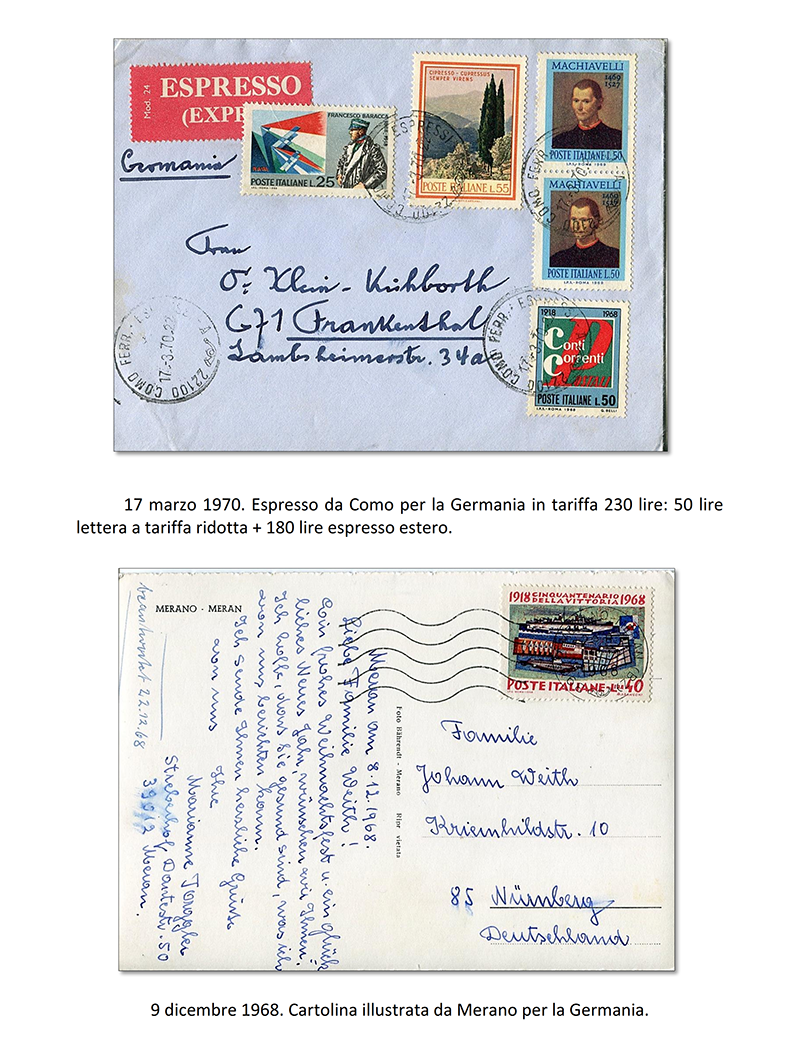 Mod. 24
ESPRESSO
(EXPR
Germania
FRANCESCO BARACCA
POSTE ITALIANE L.25
CIPRESSO - CUPRESSUS
SEMPER VIRENS
POSTE ITALIANE L.55
MACHIAVELLI
1469
1527
POSTE ITALIANE L.50
I.P.S.-ROMA 1969
MACHIAVELLI
1469
1527
POSTE ITALIANE L.50
I.P.S.-ROMA 1969
1918 1968
Conti
Correnti
POSTALI
POSTE ITALIANE L.50
I.P.S.-ROMA 1968 G. BELLI
COMO FERR.
17.-3.70.22
22100
Frau
Dr. Klein-Kühborth
671 Frankenthal
Lambsheimerstr. 34a
17 marzo 1970. Espresso da Como per la Germania in tariffa 230 lire: 50 lire
lettera a tariffa ridotta + 180 lire espresso estero.
MERANO - MERAN
beantwortet 22.12.68
Meran am 8.12.1968.
Liebe Familie Weith!
Ein frohes Weihnachtsfest u. ein glück
liches Neues Jahr, wünschen wir Ihnen.
Ich hoffe, dass Sie gesund sind, was ich
von uns berichten kann.
Ich sende Ihnen herzliche Grüsse
von uns Ihre
Marianne Torggler
Streberhof Dantestr. 50
39012 Meran.
Foto Bährendt - Merano Ripr vietata
1918 CINQUANTENARIO 1968
DELLA VITTORIA
POSTE ITALIANE L. 40
Familie
Johann Weith
Kriemhildstr. 10
85 Nürnberg
Deutschland
9 dicembre 1968. Cartolina illustrata da Merano per la Germania.